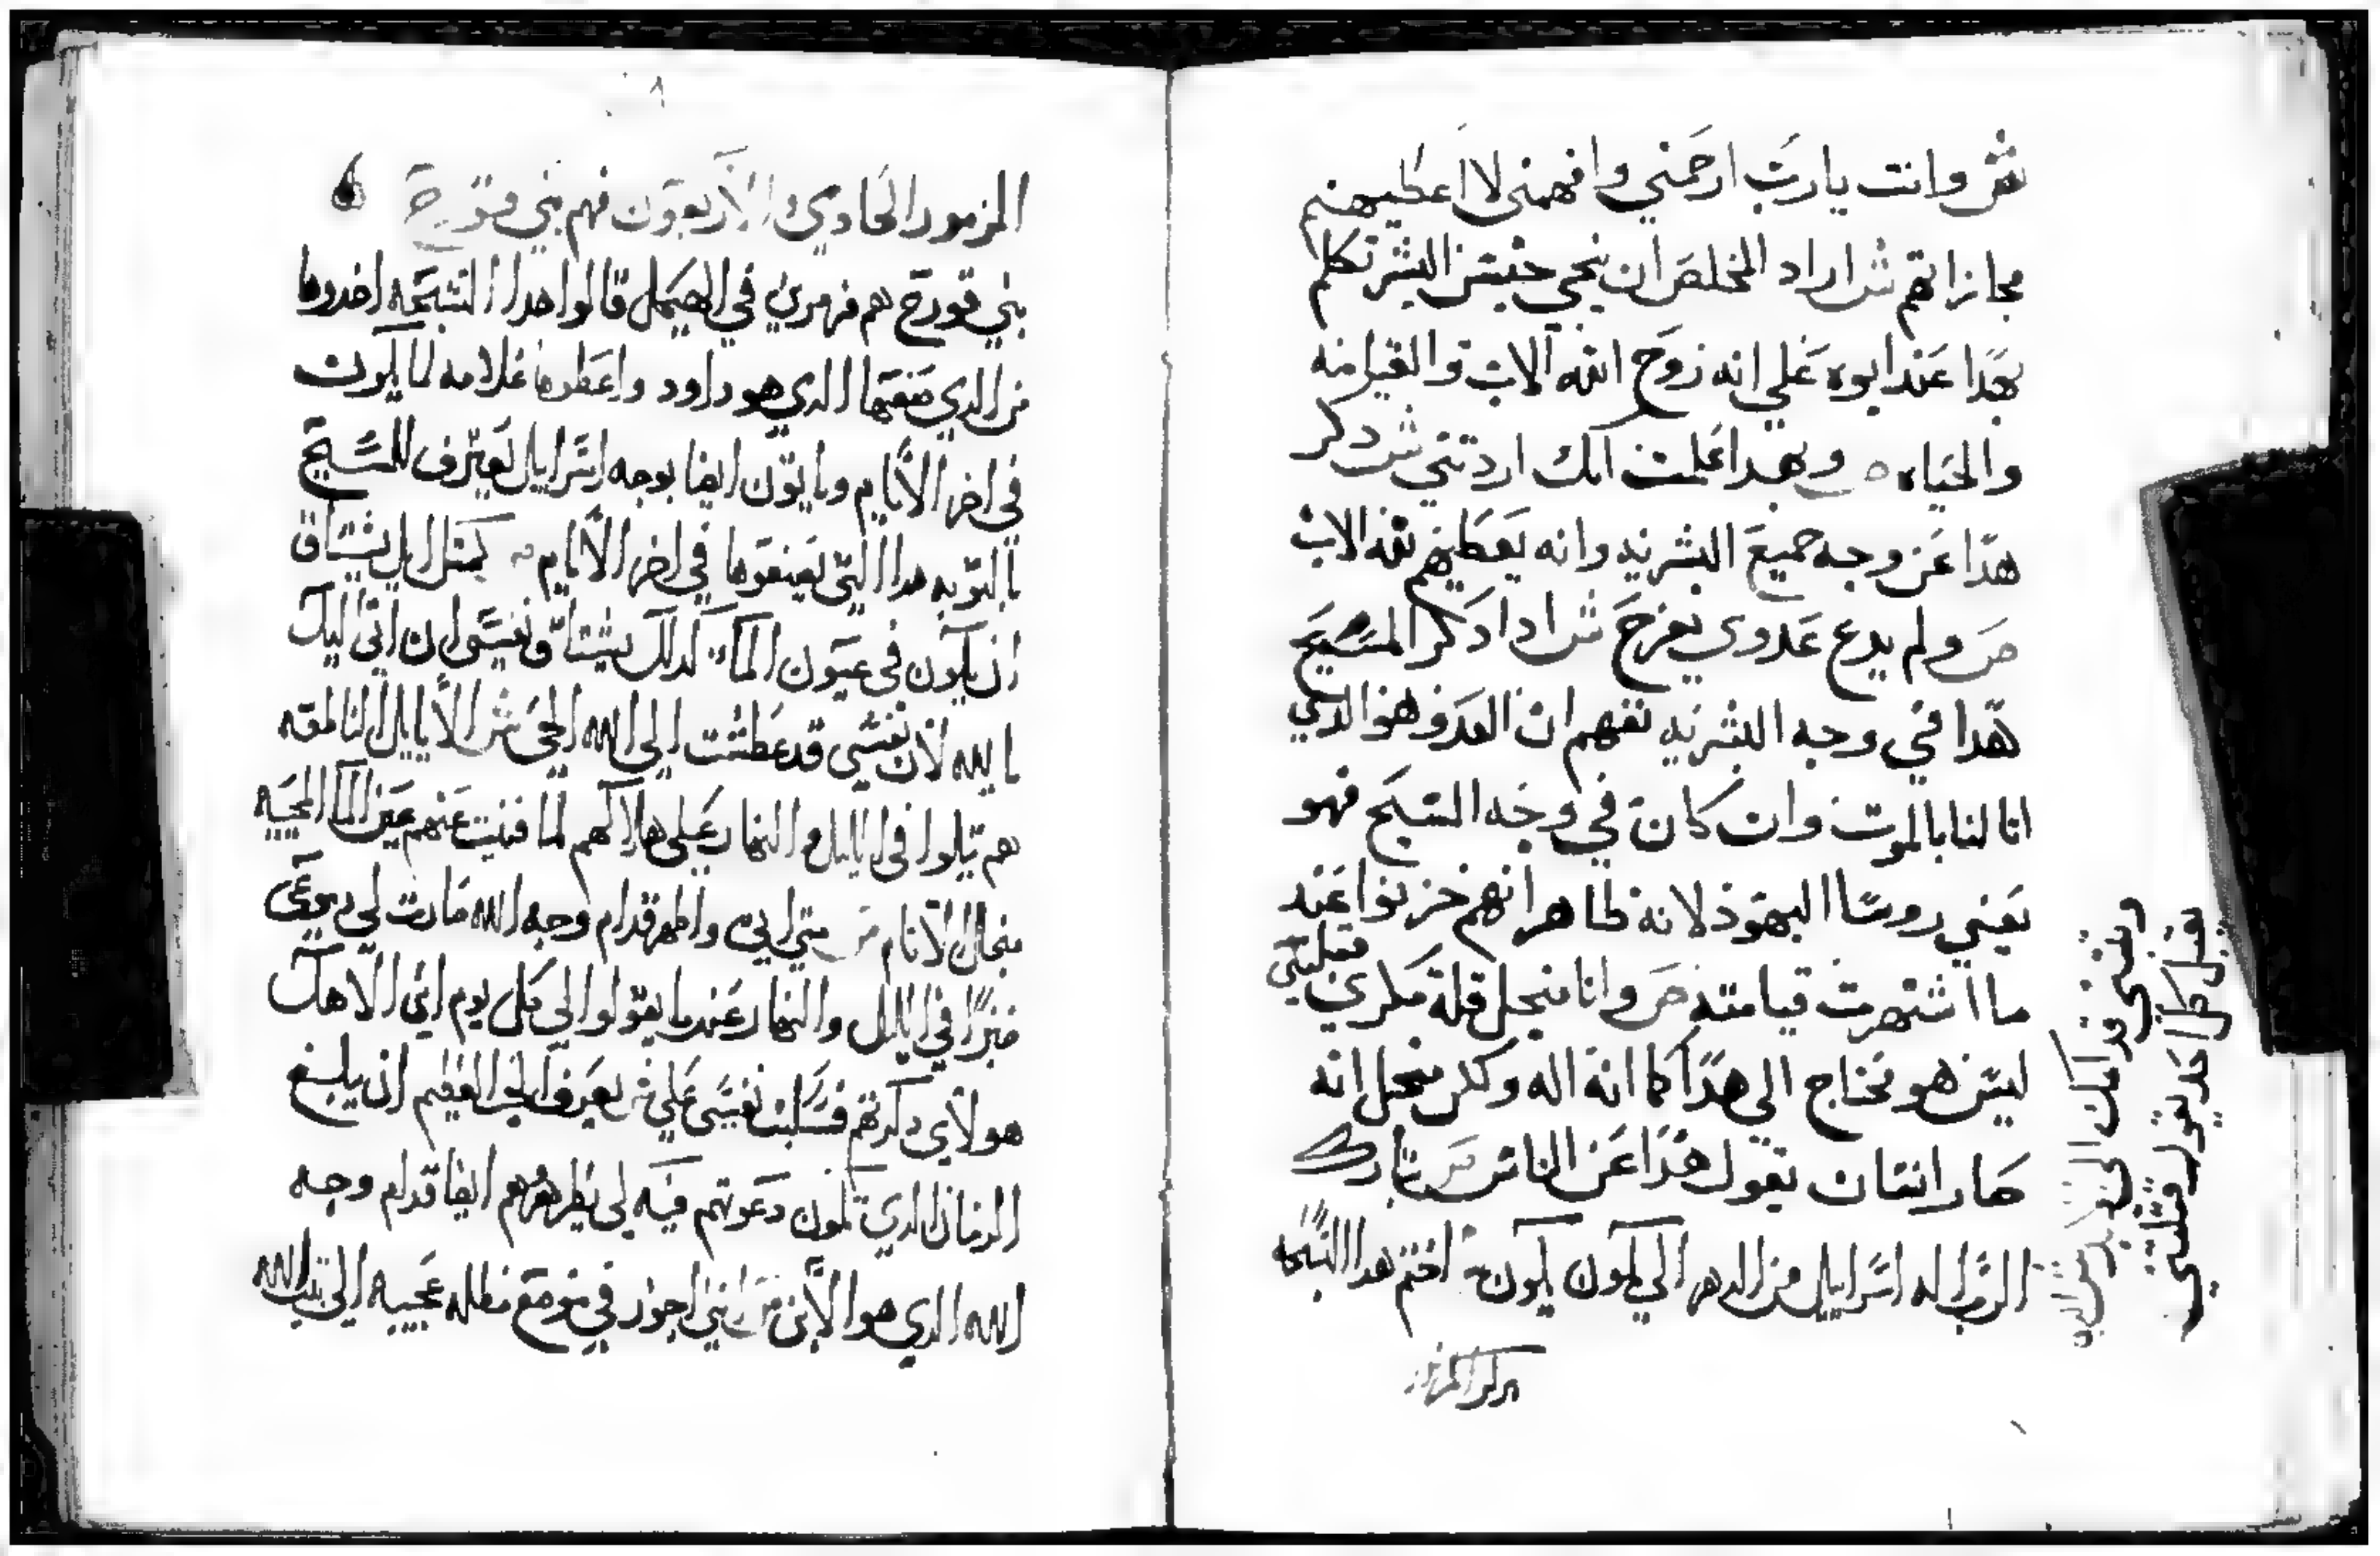 ش وانت يارب ارحمني وافهمني لا اعطيهم
مجازاتهم ش اراد المخلص ان يحي جنس البشر تكلم
بهدا عند ابوه على انه زوج اتفه الاب والقيامه
والحياه ٥ وبهدا علمت انك اردتني ش دكر
هدا عن وجه جميع البشريه وانه يعطيهم تقه الاب
ص ولم يدع عدوي يفرح ش ادا دكر المسيح
هدا في وجه البشريه تفهم ان العدو هو الدي
انا لنا بالموت وان كان في وجه المسيح فهو
يعني روسا اليهود لانه ظاهر انهم خزيوا عند
ما اشتهرت قيامته ص وانا منجل قلة مكري قبلتني
ليس هو نحتاج الى هدا كما انه اله وكلن منجل انه
صار انسان يقول هدا عن الناس ص تبارك
الرب اله اسرايل من الدهر الي يكون يكون اختم هدا التسبحه
ونثبتني قدامك الى الابد ش لانه
يقبل كل احد يقول قبلتني
المزمور الحادي والاربعون فهم بني قورح
بني قورح هم مزمرين في الهيكل قالوا هدا التسبحه اخدوها
من الدي صنعها الدي هو داود واعطوها علامه لما يكون
في اخر الايام وما يقون ايضا بوجه اسرايل يعترف للمسيح
بالتوبه هدا التي يصنعوها في اخر الايام كمتل الايل يشتاق
ان يكون في عيون الماء كدلك تشتاق نفسي ان اتي اليك
يا الله لان نفسي قد عطشت الي الله الحي ش الايايل الناطقه
هم يتلوا في الليل والنهار على هلاكهم لما فنيت عنهم عين الما المحييه
منجل الاتام ص متي اجي واظهر قدام وجه الله صارت لي دموعي
خبزا في الليل والنهار عندما يقولوا لي كل يوم اين الاهك
هولاي دكرتهم فسكبت نفسي علي ش يعرف الحب العظيم ان يبلغ
الزمان الدي تكون دعوتهم فيه لي يظهرهم ايضا قدام وجه
الله الدي هو الابن ص انني اجوز في موضع مظله عجيبه الي بيت الله